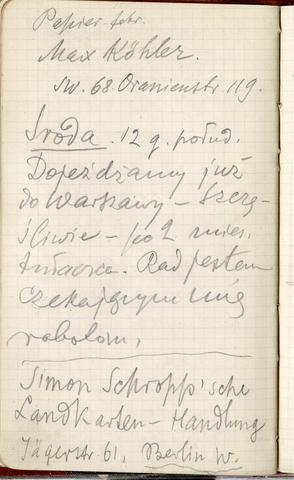 Papier-fabr.
Max Köhler.
SW. 68. Oranienstr 119.
Środa. 12 g. połud.
Dojeżdżamy już
do Warszawy – Szczę-
śliwie – po 2 mies.
tułaczce. Rad jestem
czekającym mię
robotom.
Simon Schropp'sche
Landkarten – Handlung
Jägerstr 61. Berlin W.